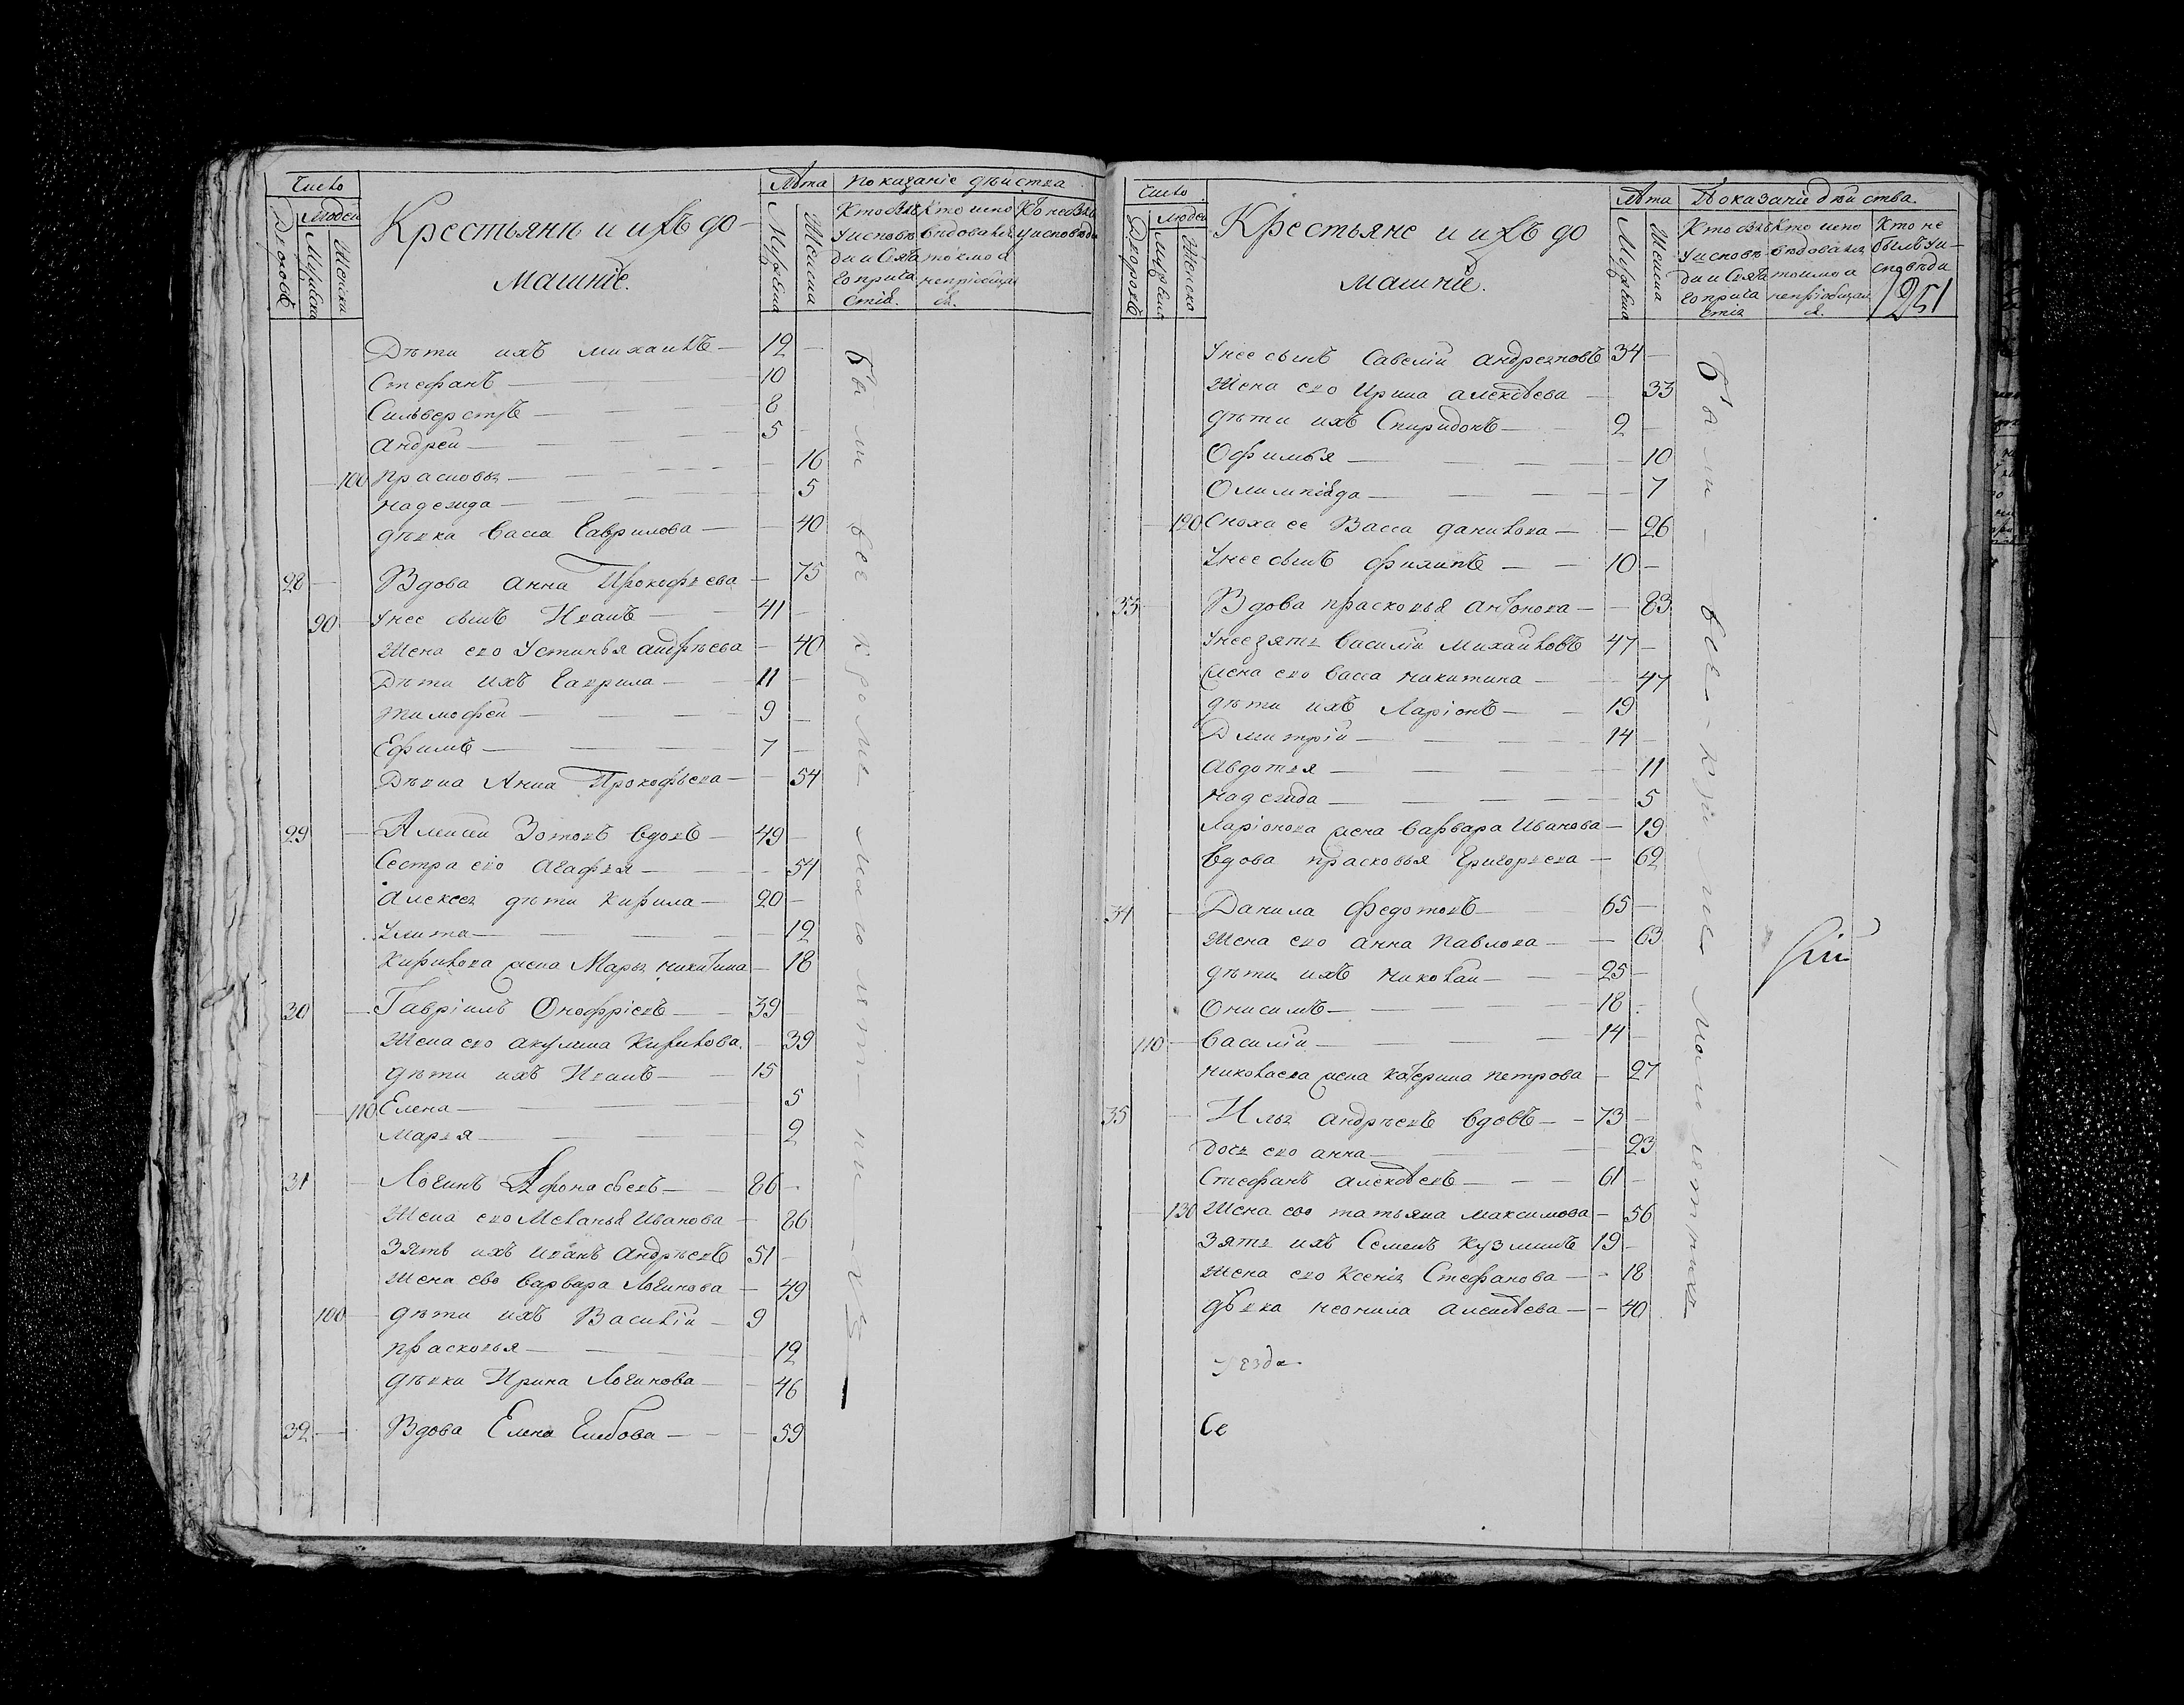 Число
Лѣта Показаніе дѣиства
Дворовъ
Людеи
Мужска
Женска
Крестьянѣ и ихъ до-
машніе.
Мужеска
Женска
Кто былъ
у исповѣ
ди и Свята
го прича
стія.
Кто испо
вѣдовался
токмо а
непріобщал
ся.
Дѣти ихъ михаилъ — 12
Стефанъ — 10
Сильверстръ — 8
андреи — 5
100 прасковья — 16
надежда — 5
дѣвка васса гаврилова — 40
28 Вдова анна Прокофьева — 75
90 унее сынъ Иванъ — 41
жена его Устинья андрѣева — 40
Дѣти ихъ гаврила — 11
тимофеи — 9
Ефимъ — 7
Дѣвка Анна Прокофьева — 54
29 Алексеи Зотовъ вдовъ — 49
Сестра его агафья — 51
алексея дѣти кирила — 20
Улита — 12
кирилова жена Марья никитина — 18
30 Гавріилъ Онофріевъ — 39
жена его акулина кирилова — 39
дѣти ихъ Иванъ — 15
110 Елена — 5
марья — 2
31 Логинъ Афонасьевъ — 86
жена его Меланья Иванова — 86
Зять ихъ иванъ андрѣевъ 51
жена ево варвара Логинова — 49
100 дѣти ихъ Василіи — 9
прасковья — 12
дѣвка Ирина Логинова — 46
32 Вдова Елена Глебова — 59
были все кроме малолетни-хъ
Число
Лѣта Показаніе дѣи ства.
Дворовъ
Людеи
Женско
Крестьяне и ихъ до
машніе.
Мужеска
Женска
Кто былъ
у исповѣ
ди и Свята
го прича
стія
Кто испо
вѣдовался
токмо а
непріобщал
ся.
Кто не
былъ у и-
сповѣди
1251
унее сынъ Савелии андреяновъ 34
жена его Ирина алексѣева — 33
дѣти ихъ Спиридонъ — 2
Офимья — 10
Олимпіада — 7
120 Сноха ее Васса данилова — 26
унее сынъ филипъ — 10
33 Вдова прасковья антонова — 83
унее зять василіи михаиловъ 47
жена его васса никитина — 47
дѣти ихъ Ларіонъ — 19
Дмитріи — 14
авдотья — 11
надежда — 5
Ларіонова жена варвара Иванова — 19
вдова прасковья григорьева — 62
34 Данила федотовъ — 65
жена его анна павлова — 63
дѣти ихъ николаи — 25
Онисимъ — 18
110 василіи — 14
николаева жена катерина петрова — 27
35 Илья андрѣевъ вдовъ — 73
дочь его анна — 23
Стефанъ алексѣевъ — 61
130 жена ево татьяна максимова — 56
Зять ихъ Семенъ кузминъ 19
жена его ксенія Стефанова — 18
дѣвка неонила алексѣева — 40
были - все - кроме малолетныхъ
рій
уезда
Се